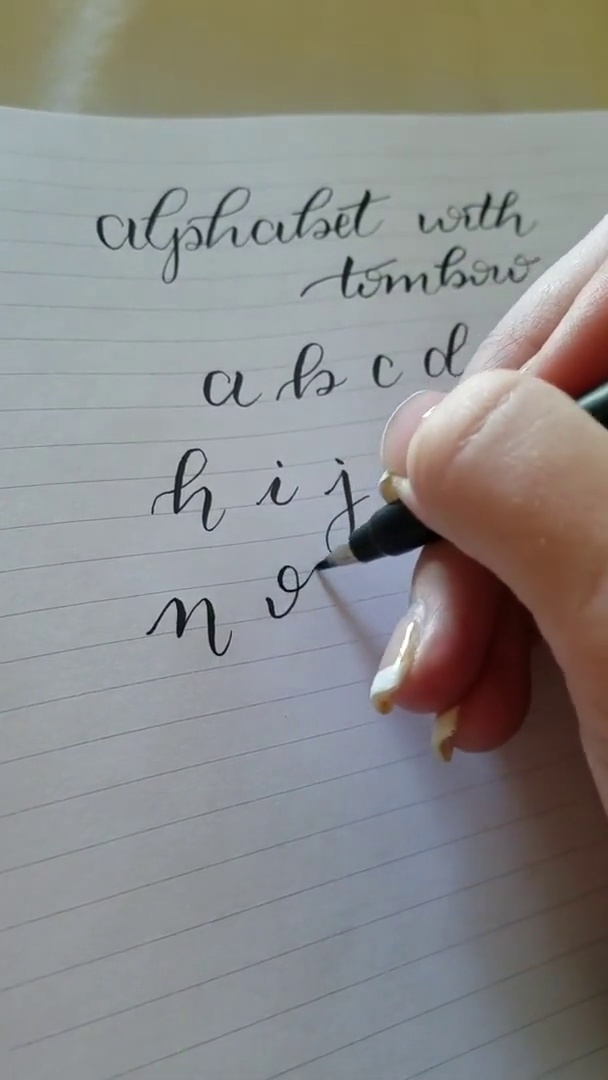 alphabet with
tombow
a b c d
h i j
n o